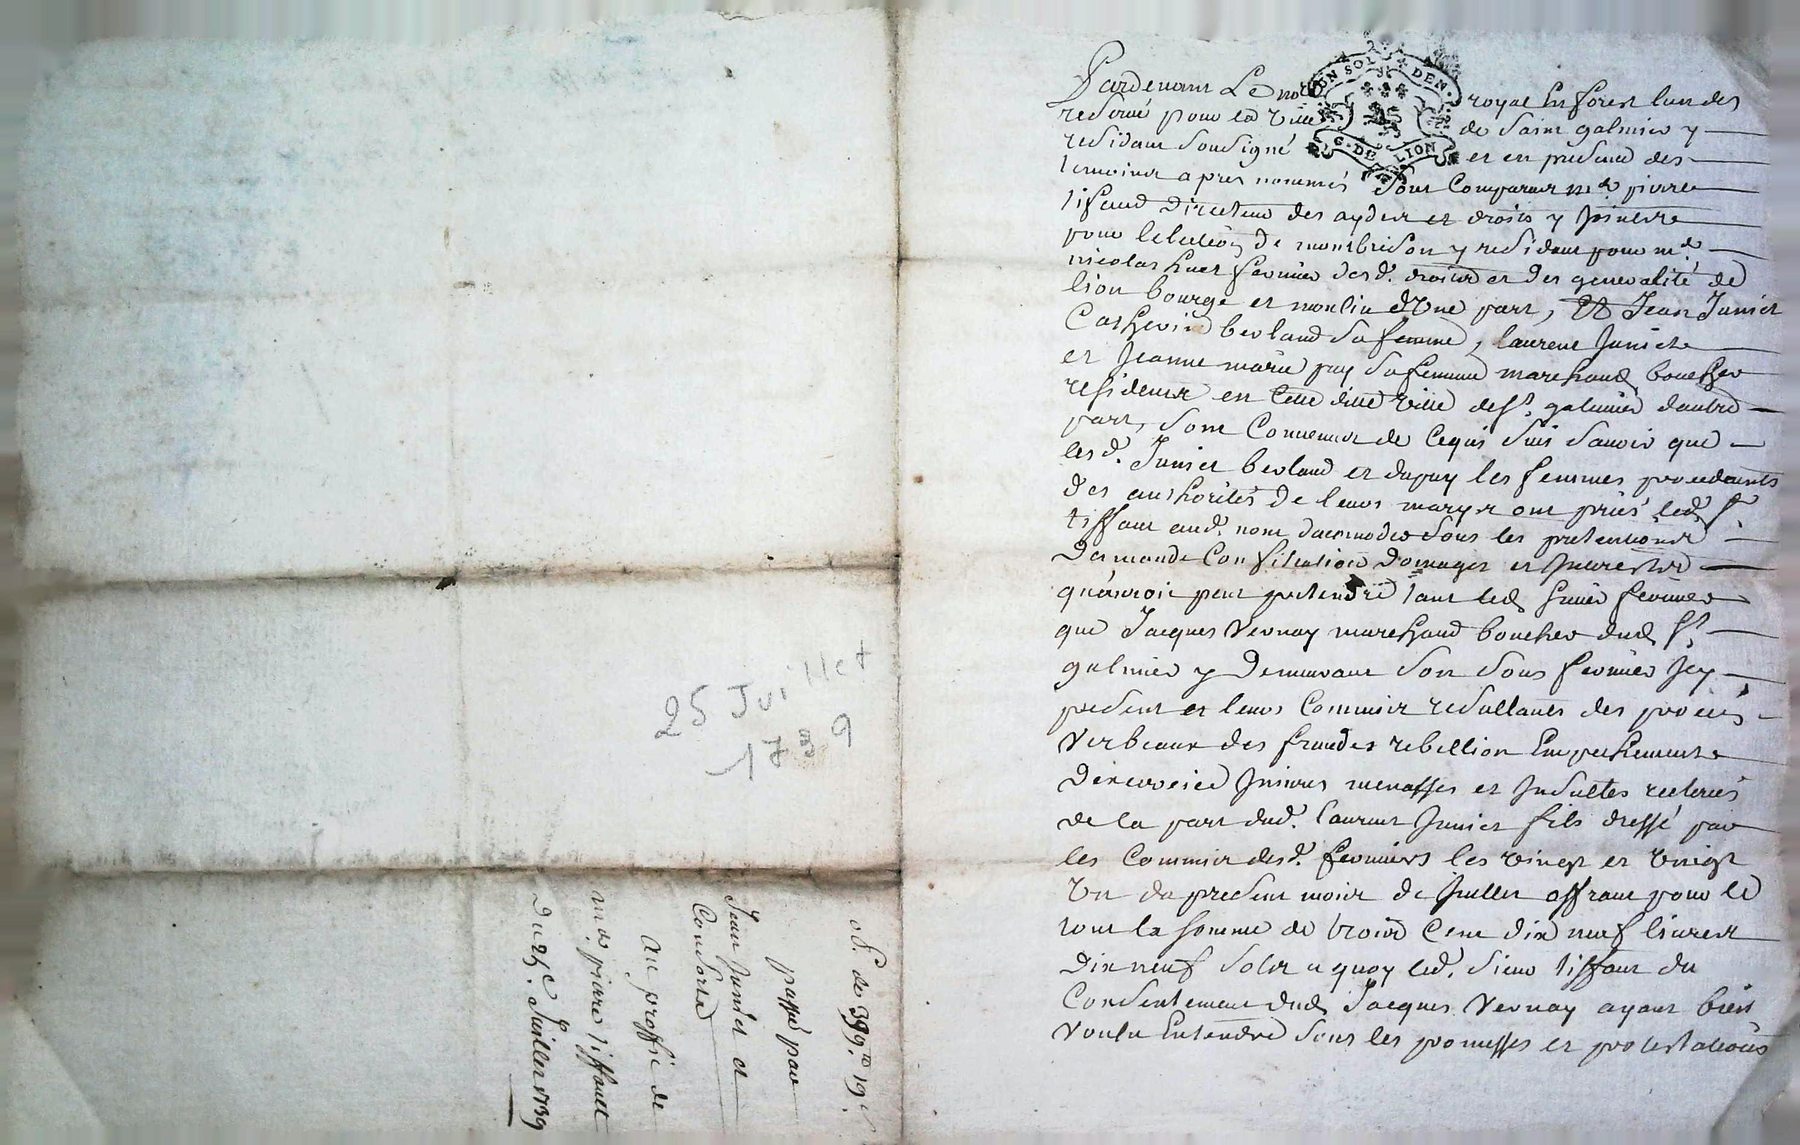 25 Juillet
1739
ob. de 399.ᵗᵗ 19.ˢ
passé par
Jean Junict et
Consorts
au proffit de
mᵉ pierre tiffaut
du 25ᵉ. Juillet 1739
UN SOL DEN.
G. DE LION
Pardevant Le noʳᵉ royal En forest lun des
reservé pour la ville de saint galmier y
residant soussigné et en presence des
temoins apres nommés sont Comparus mᵉ pierre
tifaud Directeur des aydes et droits y joints
pour lelection de montbrison y residant pour mᵉ
nicolas huet fermier desd. droits et des generalité de
lion bourge et moulin d'Une part, Et Jean Junict
Catherine berland sa femme, laurent Junict
et Jeanne marie puy sa femme marchand boucher
residents en Cette ditte ville de sᵗ. galmier dautre
part, sont Convenus de Cequi suit savoir que
les d. Junict berland et dupuy les femmes procedants
des authorités de leurs marys ont priés led. sʳ.
tiffaut aud. nom daccomoder sous les pretentions
Demande Confiscation Domages et Interests
quauroit peut pretendre tant led. huet fermier
que Jacques Vernay marchand boucher dud. sᵗ.
galmier y Demeurant son sous fermier Icy
present et leurs Commis resultants des procès
Verbeaux des fraudes rebellion Empechements
Dexercice Injures menasses et Insultes
de la part dud. laurent Junict fils dressé par
les Commis desd. fermiers les vingt et vingt
Un du present mois de Juillet offrant pour le
tout la somme de trois Cent dix neuf livres
Dix neuf sols a quoy led. sieur tiffaut du
Consentement dud. Jacques Vernay ayant bien
voulu Entendre sous les promesses et protestations